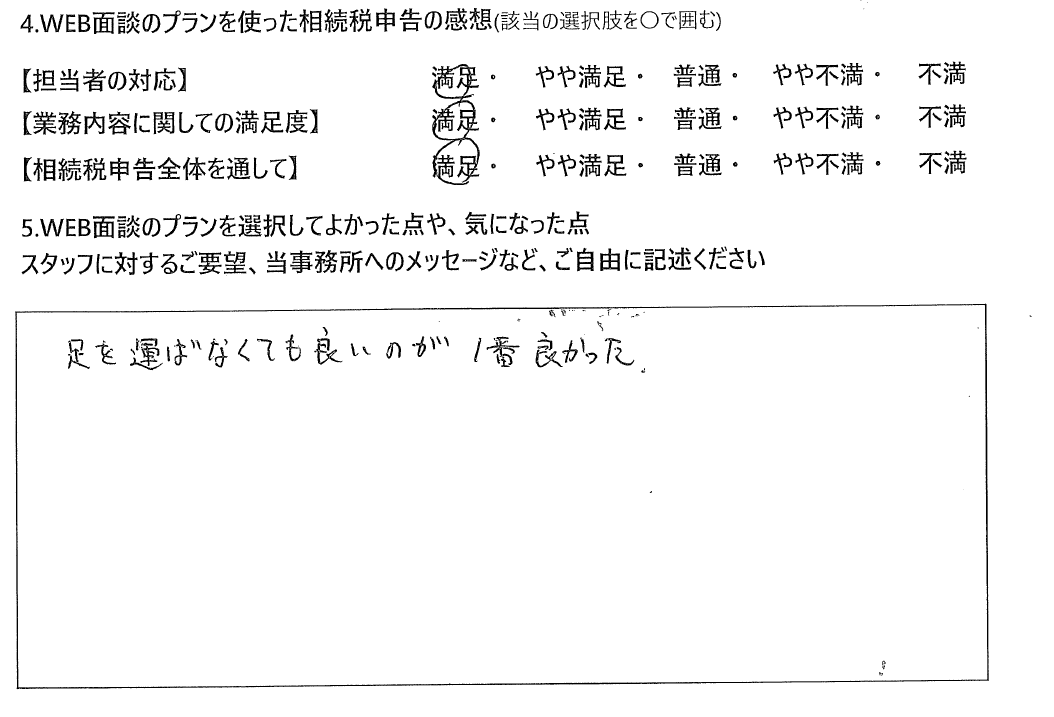 4.WEB面談のプランを使った相続税申告の感想(該当の選択肢を〇で囲む)
【担当者の対応】 満足・ やや満足・ 普通・ やや不満・ 不満
【業務内容に関しての満足度】 満足・ やや満足・ 普通・ やや不満・ 不満
【相続税申告全体を通して】 満足・ やや満足・ 普通・ やや不満・ 不満
5.WEB面談のプランを選択してよかった点や、気になった点
スタッフに対するご要望、当事務所へのメッセージなど、ご自由に記述ください
足を運ばなくても良いのが 1番良かった。